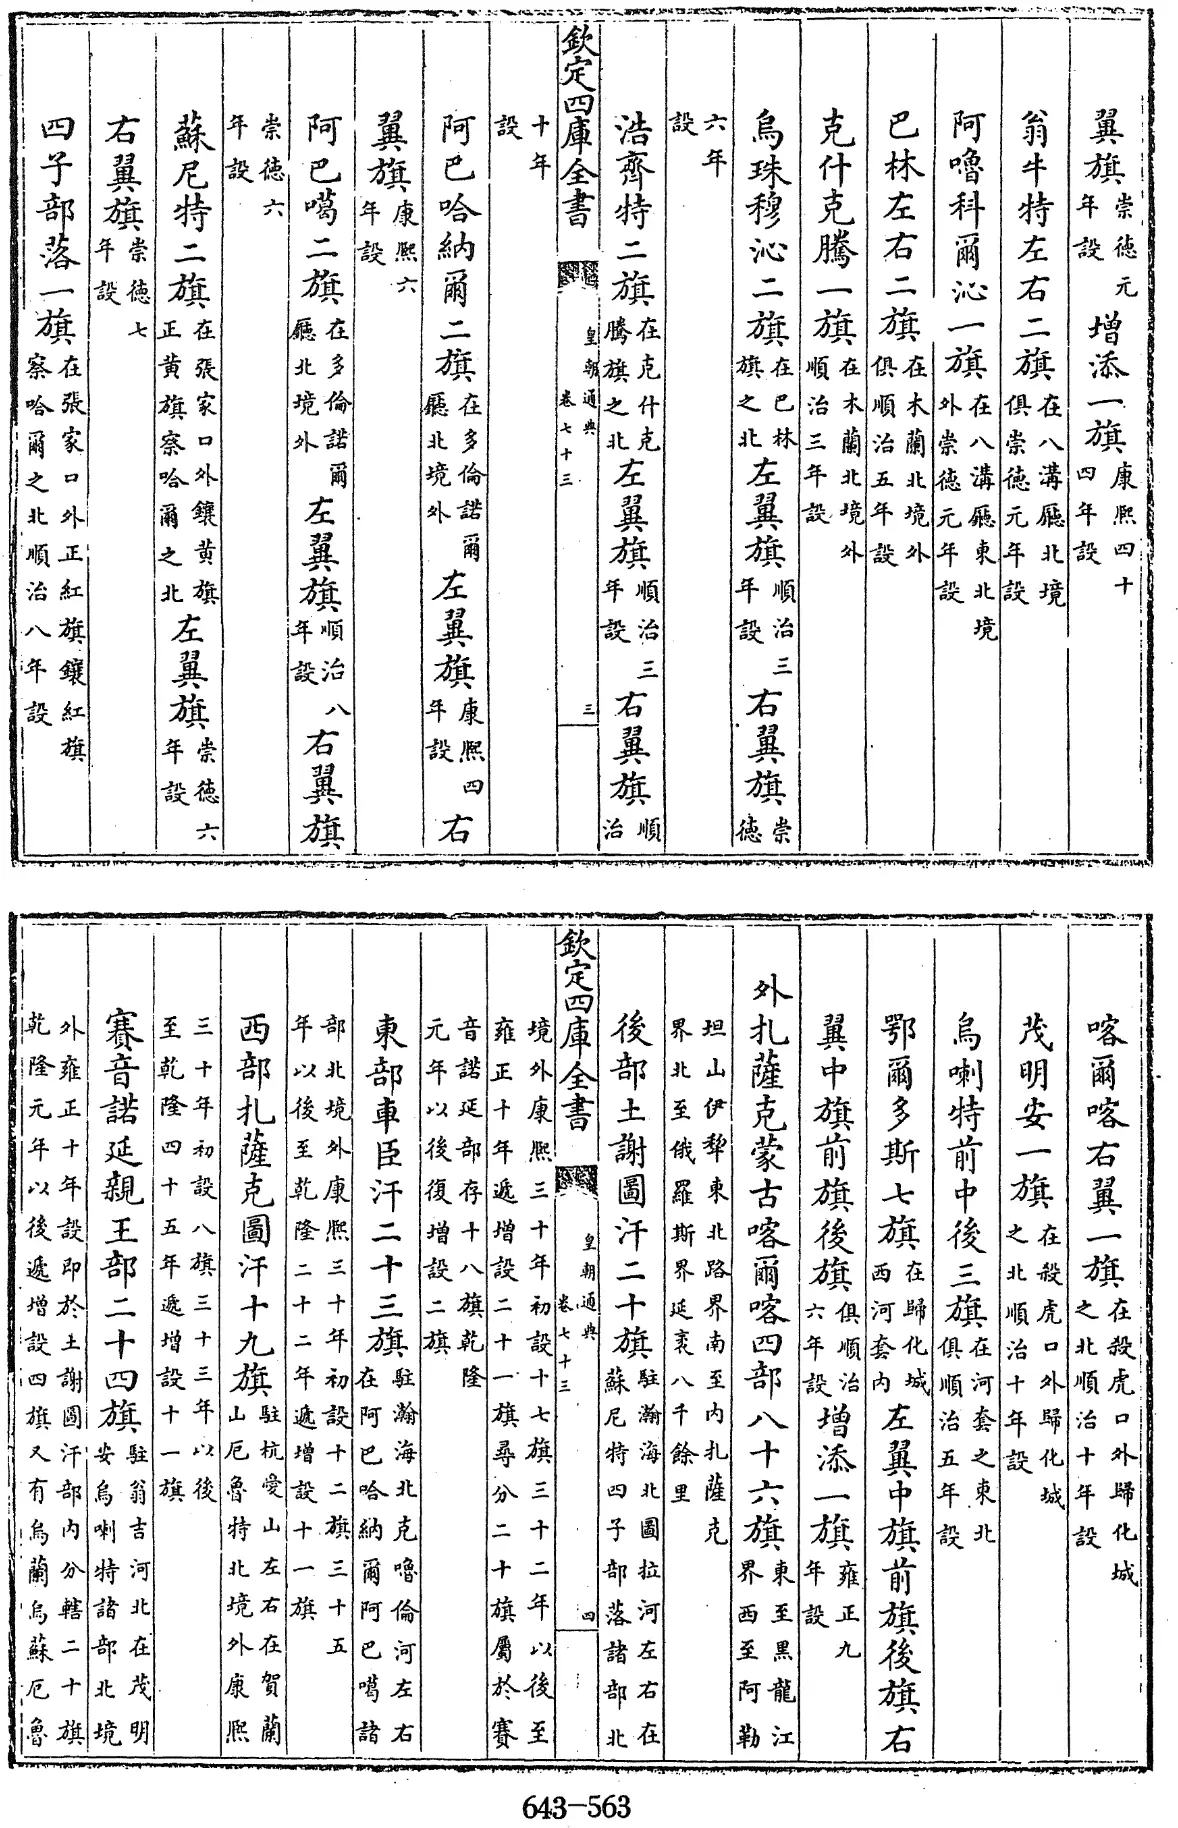 翼旗崇德元年設增添一旗康熙四十四年設
翁牛特左右二旗在八溝廳北境俱崇德元年設
阿嚕科爾沁一旗在八溝廳東北境外崇德元年設
巴林左右二旗在木蘭北境外俱順治五年設
克什克騰一旗在木蘭北境外順治三年設
烏珠穆沁二旗在巴林旗之北左翼旗順治三年設右翼旗崇德
六年設
浩齊特二旗在克什克騰旗之北左翼旗順治三年設右翼旗順治
欽定四庫全書 皇朝通典 卷七十三 三
十年設
阿巴哈納爾二旗在多倫諾爾廳北境外左翼旗康熙四年設右
翼旗康熙六年設
阿巴噶二旗在多倫諾爾廳北境外左翼旗順治八年設右翼旗
崇德六年設
蘇尼特二旗在張家口外鑲黃旗正黃旗察哈爾之北左翼旗崇德六年設
右翼旗崇德七年設
四子部落一旗在張家口外正紅旗鑲紅旗察哈爾之北順治八年設
喀爾喀右翼一旗在殺虎口外歸化城之北順治十年設
茂明安一旗在殺虎口外歸化城之北順治十年設
烏喇特前中後三旗在河套之東北俱順治五年設
鄂爾多斯七旗在歸化城西河套內左翼中旗前旗後旗右
翼中旗前旗後旗俱順治六年設增添一旗雍正九年設
外扎薩克蒙古喀爾喀四部八十六旗東至黑龍江界西至阿勒
坦山伊犂東北路界南至內扎薩克界北至俄羅斯界延袤八千餘里
後部土謝圖汗二十旗駐瀚海北圖拉河左右在蘇尼特四子部落諸部北
欽定四庫全書 皇朝通典 卷七十三 四
境外康熙三十年初設十七旗三十二年以後至雍正十年遞增設二十一旗尋分二十旗屬於賽
音諾延部存十八旗乾隆元年以後復增設二旗
東部車臣汗二十三旗駐瀚海北克嚕倫河左右在阿巴哈納爾阿巴噶諸
部北境外康熙三十年初設十二旗三十五年以後至乾隆二十二年遞增設十一旗
西部扎薩克圖汗十九旗駐杭愛山左右在賀蘭山厄魯特北境外康熙
三十年初設八旗三十三年以後至乾隆四十五年遞增設十一旗
賽音諾延親王部二十四旗駐翁吉河北在茂明安烏喇特諸部北境
外雍正十年設即於土謝圖汗部內分轄二十旗乾隆元年以後遞增設四旗又有烏蘭烏蘇厄魯
643-563